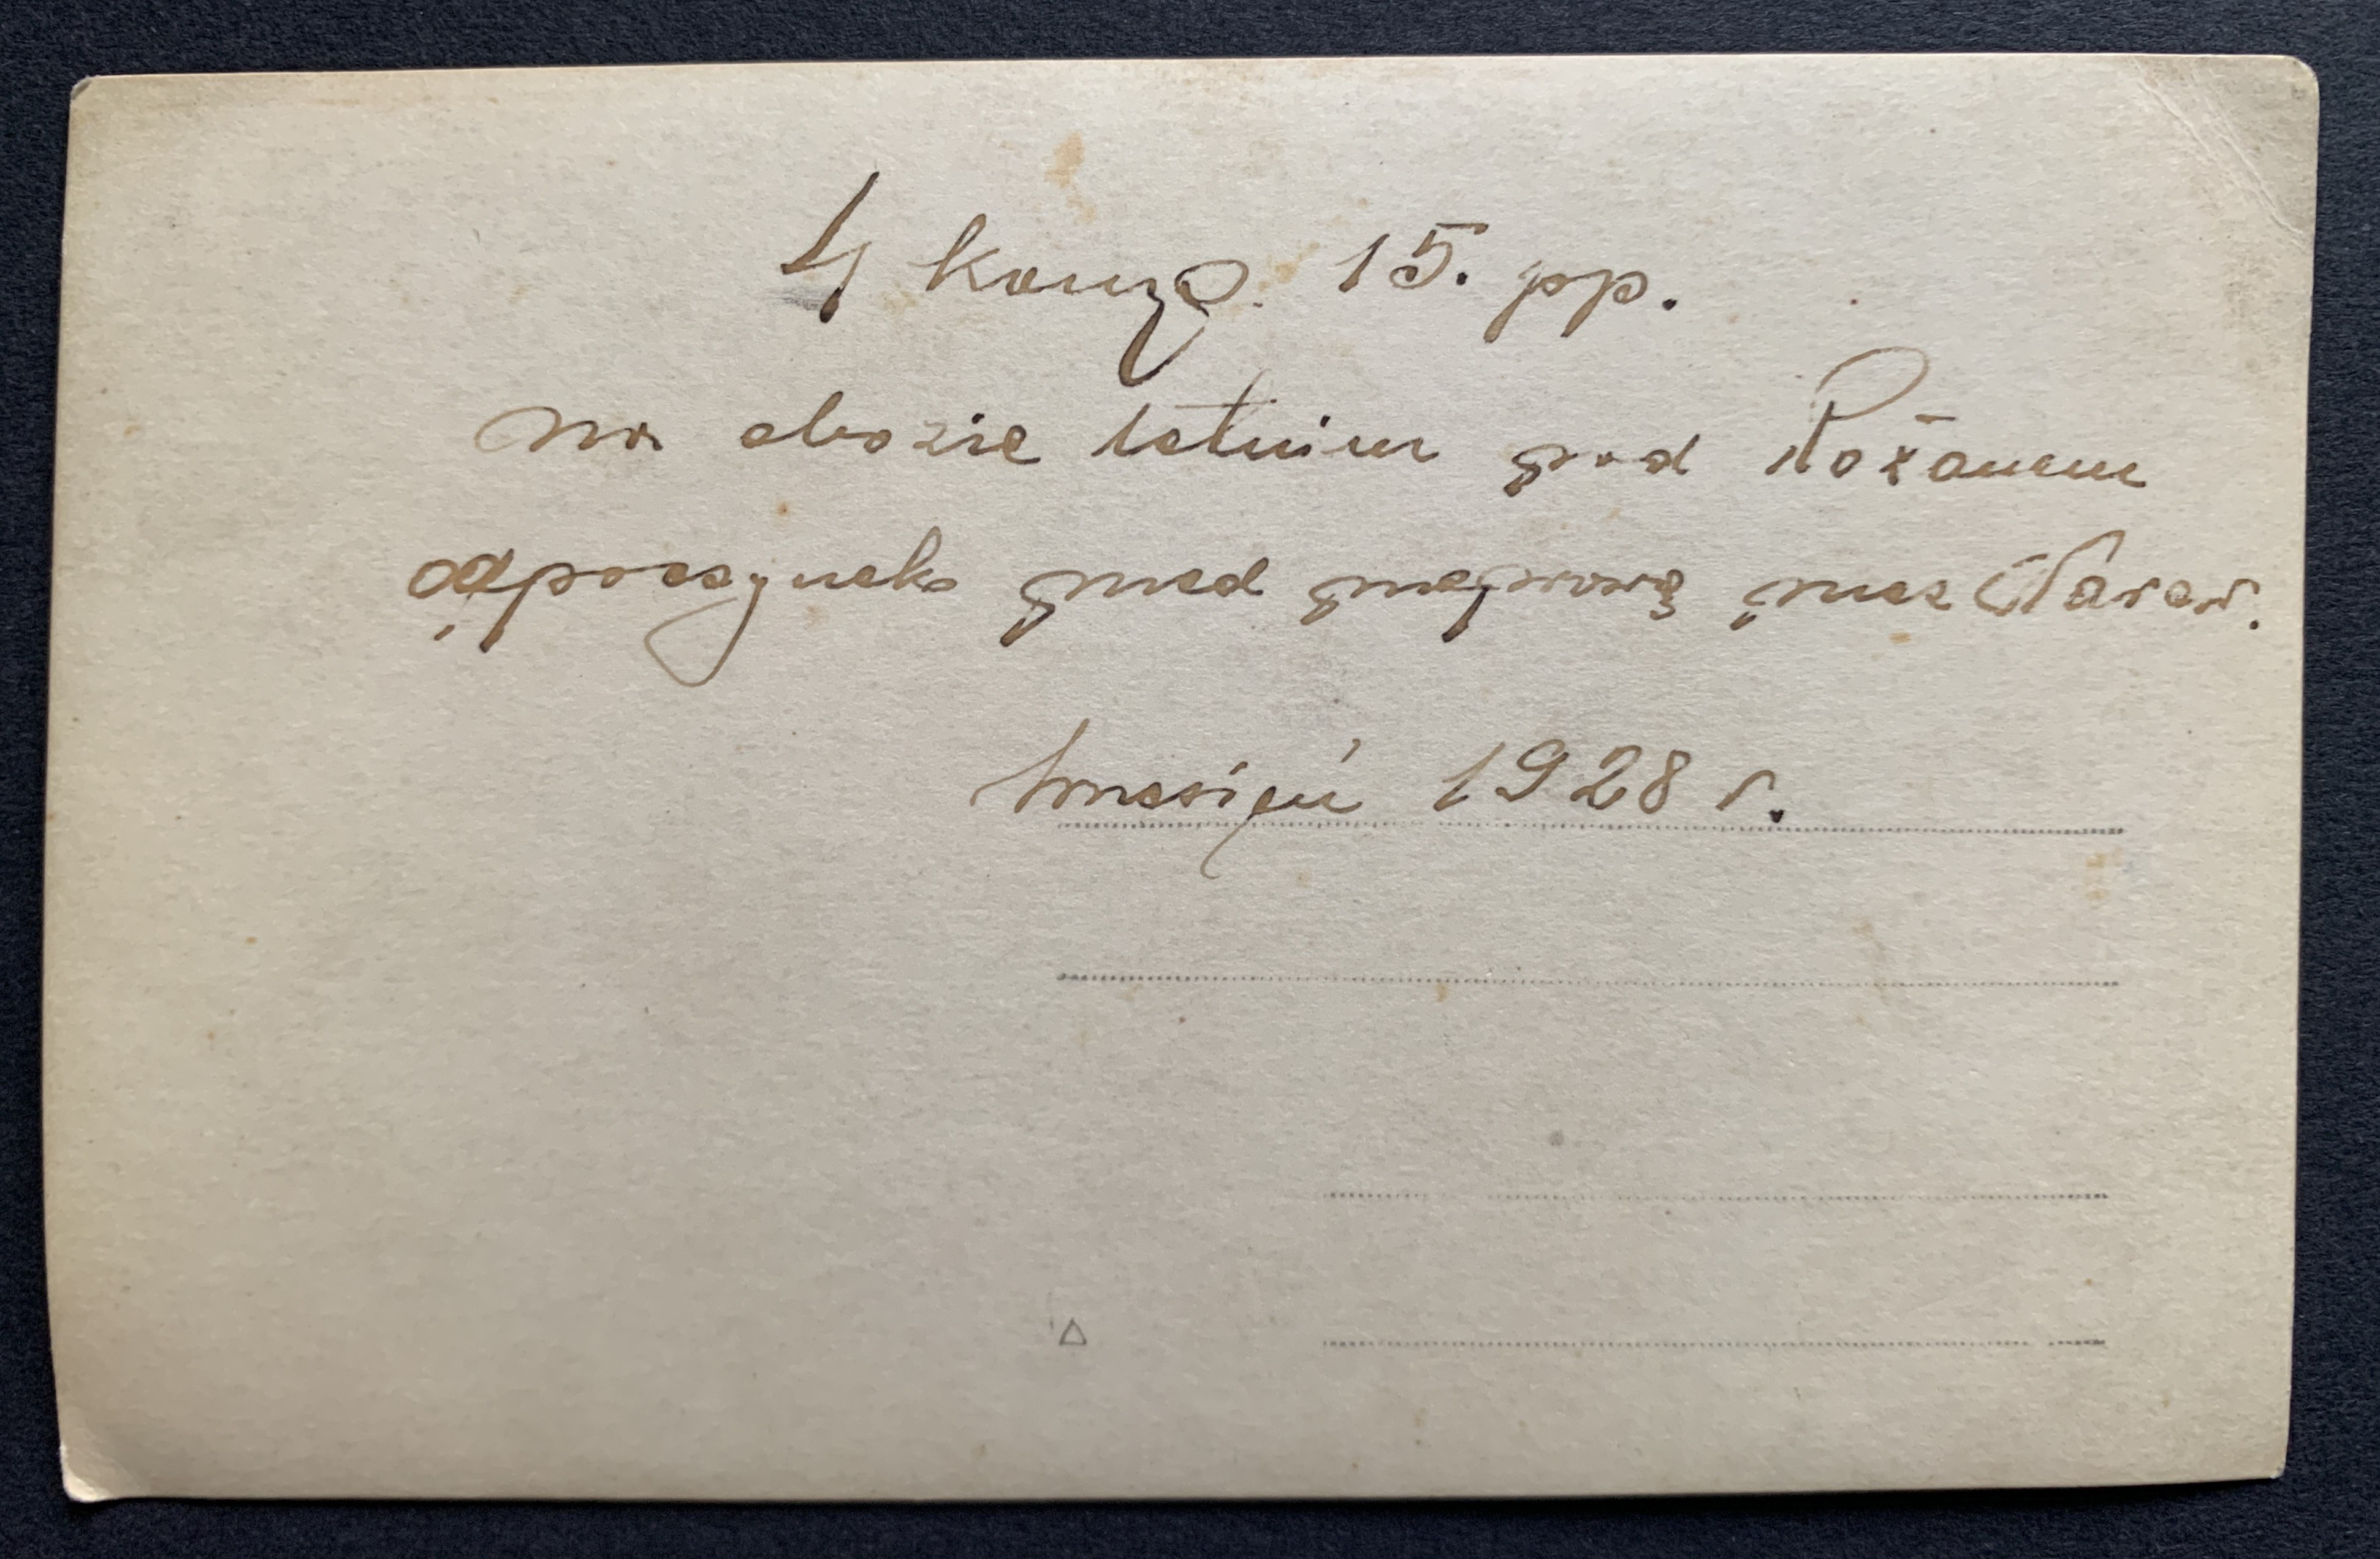 4 komp. 15. pp.
na obozie letnim pod Rożanem
odpoczynek przed przeprawą przez Narew.
wrzesień 1928 r.